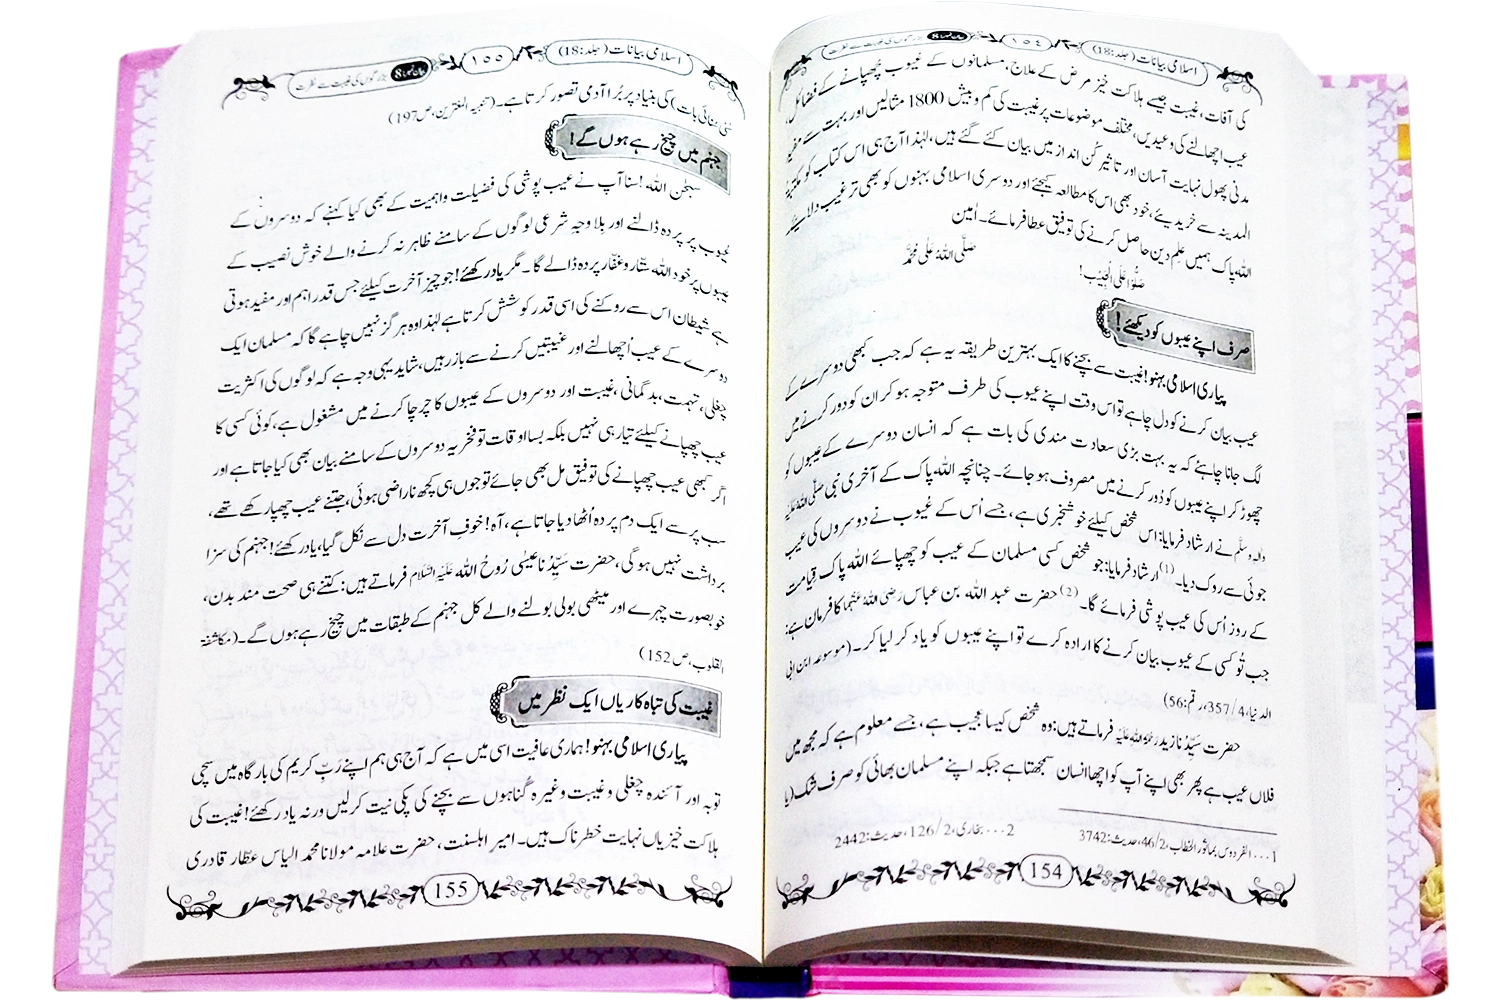 اسلامی بیانات (جلد:18)
١٥٤
بیان نمبر:8
بزرگوں کی غیبت سے نفرت
کی آفات، غیبت جیسے ہلاکت خیز مرض کے علاج، مسلمانوں کے عیوب چھپانے کے فضائل،
عیب اچھالنے کی وعیدیں، مختلف موضوعات پر غیبت کی کم و بیش 1800 مثالیں اور بہت سے مفید
مدنی پھول نہایت آسان اور تاثیر کُن انداز میں بیان کئے گئے ہیں، لہٰذا آج ہی اس کتاب کو مکتبۃ
المدینہ سے خریدیئے، خود بھی اس کا مطالعہ کیجئے اور دوسری اسلامی بہنوں کو بھی ترغیب دلائیے
اللہ پاک ہمیں علمِ دین حاصل کرنے کی توفیق عطا فرمائے۔ اٰمین
صَلُّوْا عَلَی الْحَبِیْب! صَلَّی اللہُ عَلٰی مُحَمَّد
صرف اپنے عیبوں کو دیکھئے!
پیاری اسلامی بہنو! غیبت سے بچنے کا ایک بہترین طریقہ یہ ہے کہ جب کبھی دوسرے کے
عیب بیان کرنے کو دل چاہے تو اس وقت اپنے عیوب کی طرف متوجہ ہو کر ان کو دور کرنے میں
لگ جانا چاہئے کہ یہ بہت بڑی سعادت مندی کی بات ہے کہ انسان دوسرے کے عیبوں کو
چھوڑ کر اپنے عیبوں کو دُور کرنے میں مصروف ہو جائے۔ چنانچہ اللہ پاک کے آخری نبی صَلَّی اللہُ عَلَیْہِ
وَاٰلِہٖ وَسَلَّم نے ارشاد فرمایا: اس شخص کیلئے خوشخبری ہے، جسے اُس کے عیوب نے دوسروں کی عیب
جوئی سے روک دیا۔(1) ارشاد فرمایا: جو شخص کسی مسلمان کے عیب کو چھپائے اللہ پاک قیامت
کے روز اُس کی عیب پوشی فرمائے گا۔(2) حضرت عبد اللہ بن عباس رَضِیَ اللہُ عَنْہُمَا کا فرمان ہے:
جب تُو کسی کے عیوب بیان کرنے کا ارادہ کرے تو اپنے عیبوں کو یاد کر لیا کر۔ (موسوعہ ابن ابی
الدنیا، 357/4، رقم:56)
حضرت سَیِّدُنا زید رَحْمَۃُ اللہِ عَلَیْہ فرماتے ہیں: وہ شخص کیسا عجیب ہے، جسے معلوم ہے کہ مجھ میں
فلاں عیب ہے پھر بھی اپنے آپ کو اچھا انسان سمجھتا ہے جبکہ اپنے مسلمان بھائی کو صرف شک (یا
1… الفردوس بماثور الخطاب، 46/2، حدیث:3742
2… بخاری، 126/2، حدیث:2442
154
اسلامی بیانات (جلد:18)
١٥٥
بیان نمبر:8
بزرگوں کی غیبت سے نفرت
سُنی سنائی بات) کی بنیاد پر بُرا آدمی تصور کرتا ہے۔ (تنبیہ المغترین، ص197)
جہنم میں چیخ رہے ہوں گے!
سبحٰن اللہ! سنا آپ نے عیب پوشی کی فضیلت و اہمیت کے بھی کیا کہنے کہ دوسروں کے
عیوب پر پردہ ڈالنے اور بِلا وجہِ شرعی لوگوں کے سامنے ظاہر نہ کرنے والے خوش نصیب کے
عیبوں پر خود اللہ ستّار و غفّار پردہ ڈالے گا۔ مگر یاد رکھئے! جو چیز آخرت کیلئے جس قدر اہم اور مفید ہوتی
ہے شیطان اس سے روکنے کی اسی قدر کوشش کرتا ہے لہٰذا وہ ہرگز نہیں چاہے گا کہ مسلمان ایک
دوسرے کے عیب اُچھالنے اور غیبتیں کرنے سے باز رہیں، شاید یہی وجہ ہے کہ لوگوں کی اکثریت
چغلی، تہمت، بدگمانی، غیبت اور دوسروں کے عیبوں کا چرچا کرنے میں مشغول ہے، کوئی کسی کا
عیب چھپانے کیلئے تیار ہی نہیں بلکہ بسا اوقات تو فخریہ دوسروں کے سامنے بیان بھی کیا جاتا ہے اور
اگر کبھی عیب چھپانے کی توفیق مل بھی جائے تو جوں ہی کچھ ناراضی ہوئی، جتنے عیب چھپا رکھے تھے،
سب پر سے ایک دم پردہ اُٹھا دیا جاتا ہے، آہ! خوفِ آخرت دل سے نکل گیا، یاد رکھئے! جہنم کی سزا
برداشت نہیں ہو گی، حضرت سَیِّدُنا عیسٰی رُوحُ اللہ عَلَیْہِ السَّلَام فرماتے ہیں: کتنے ہی صحت مند بدن،
خوبصورت چہرے اور میٹھی بولی بولنے والے کل جہنم کے طبقات میں چیخ رہے ہوں گے۔ (مکاشفۃ
القلوب، ص152)
غیبت کی تباہ کاریاں ایک نظر میں
پیاری اسلامی بہنو! ہماری عافیت اسی میں ہے کہ آج ہی ہم اپنے ربِّ کریم کی بارگاہ میں سچی
توبہ اور آئندہ چغلی و غیبت وغیرہ گناہوں سے بچنے کی پکی نیت کر لیں ورنہ یاد رکھئے! غیبت کی
ہلاکت خیزیاں نہایت خطرناک ہیں۔ امیرِ اہلسنت، حضرت علامہ مولانا محمد الیاس عطّار قادری
155